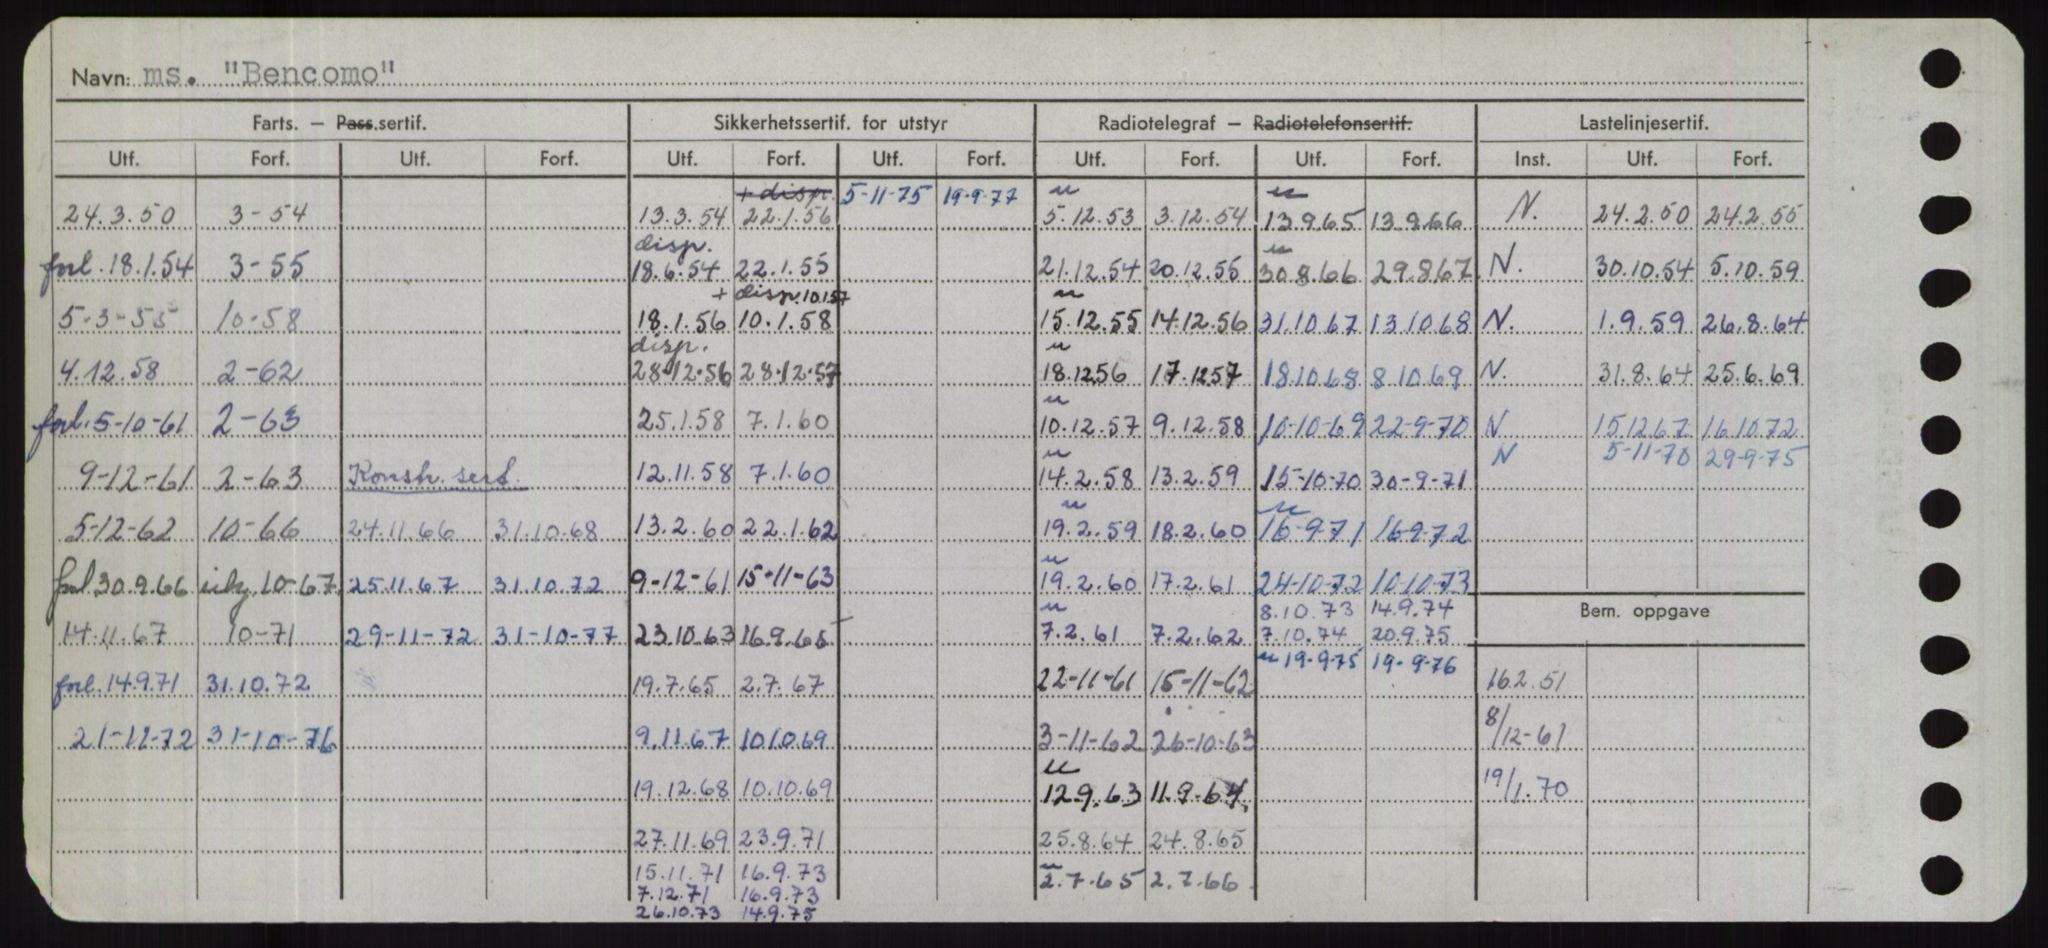 Navn: ms. "Bencomo"
Farts. — Pass.sertif. Sikkerhetssertif. for utstyr Radiotelegraf — Radiotelefonsertif. Lastelinjesertif.
Utf. Forf. Utf. Forf. Utf. Forf. Utf. Forf. Utf. Forf. Utf. Forf. Inst. Utf. Forf.
+ disp. 5-11-75 19-9-77 u u
24.3.50 3-54 13.3.54 22.1.56 5.12.53 3.12.54 13.9.65 13.9.66 N. 24.2.50 24.2.55
disp. u
forl. 18.1.54 3-55 18.6.54 22.1.55 21.12.54 20.12.55 30.8.66 29.8.67 N. 30.10.54 5.10.59
+ disp. 10.1.57 u
5-3-55 10-58 18.1.56 10.1.58 15.12.55 14.12.56 31.10.67 13.10.68 N. 1.9.59 26.8.64
disp. u
4.12.58 2-62 28.12.56 28.12.57 18.12.56 17.12.57 18.10.68 8.10.69 N. 31.8.64 25.6.69
u
forl. 5-10-61 2-63 25.1.58 7.1.60 10.12.57 9.12.58 10-10-69 22-9-70 N 15.12.67 16.10.72
u N 5-11-70 29-9-75
9-12-61 2-63 Konstr. sert. 12.11.58 7.1.60 14.2.58 13.2.59 15-10-70 30-9-71
u u
5-12-62 10-66 24.11.66 31.10.68 13.2.60 22.1.62 19.2.59 18.2.60 16-9-71 16-9-72
u
forl 30.9.66 10-67 25.11.67 31.10.72 9-12-61 15-11-63 19.2.60 17.2.61 24-10-72 10-10-73
u 8.10.73 14.9.74 Bem. oppgave
14.11.67 10-71 29-11-72 31-10-77 23.10.63 16.9.65 7.2.61 7.2.62 7.10.74 20.9.75
u 19-9-75 19-9-76
forl. 14.9.71 31.10.72 19.7.65 2.7.67 22-11-61 15-11-62 16.2.51
21-11-72 31-10-76 9.11.67 10.10.69 3-11-62 26-10-63 8/12-61
u
19.12.68 10.10.69 12.9.63 11.9.64 19/1.70
27.11.69 23.9.71 25.8.64 24.8.65
15.11.71 16.9.73 u 2.7.65 2.7.66
7.12.71 16.9.73
26.10.73 14.9.75